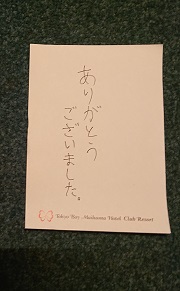 ありがとう
ございました。
Tokyo Bay Maihama Hotel Club Resort